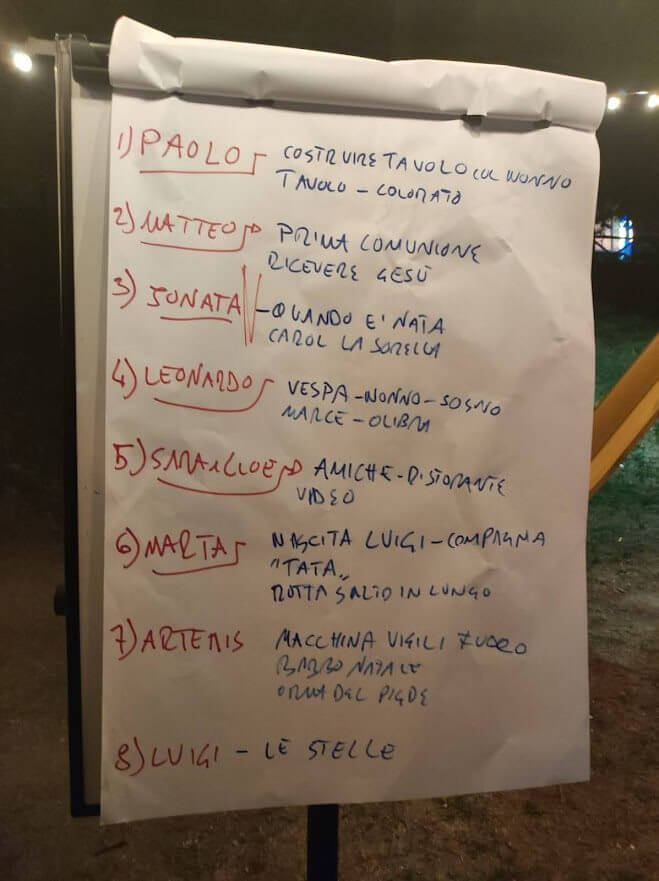 1) PAOLO COSTRUIRE TAVOLO COL NONNO
TAVOLO - COLORATO
2) MATTEO PRIMA COMUNIONE
RICEVERE GESÙ
3) JONATA - QUANDO E' NATA
CAROL LA SORELLA
4) LEONARDO VESPA - NONNO - SOGNO
MARCE -
5) AMICHE -
VIDEO
6) MARTA NASCITA LUIGI - COMPAGNA
"TATA"
SALTO IN LUNGO
7) ARTEMIS MACCHINA VIGILI FUOCO
BABBO NATALE
ORMA DEL PIEDE
8) LUIGI - LE STELLE